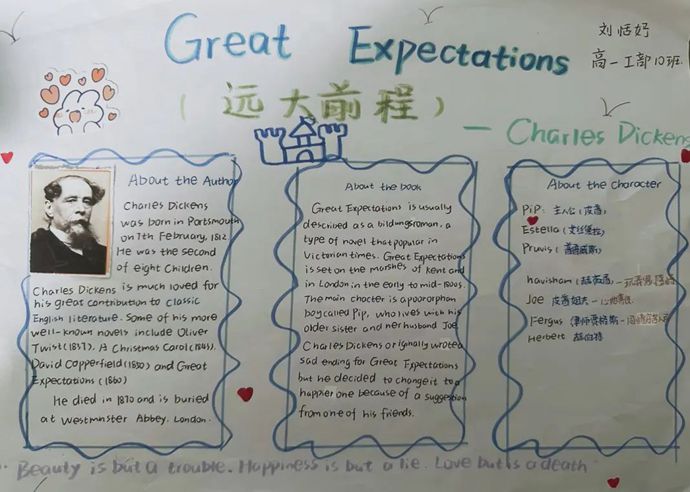 Great Expectations
刘恬妤
高一工部10班
(远大前程)
— Charles Dickens
About the Author
Charles Dickens
was born in Portsmouth
on 7th February, 1812.
He was the second
of eight Children.
Charles Dickens is much loved for
his great contribution to classic
English literature. Some of his more
well-known novels include Oliver
Twist (1837), A Christmas Carol (1843),
David Copperfield (1850) and Great
Expectations (1860)
He died in 1870 and is buried
at Westminster Abbey. London.
About the book
Great Expectations is usually
described as a bildungsroman, a
type of novel that popular in
Victorian times. Great Expectations
is set on the marshes of Kent and
in London in the early to mid-1800s.
The main chacter is a poor orphan
boy called Pip, who lives with his
older sister and her husband Joe.
Charles Dickens originally wrote a
sad ending for Great Expectations
but he decided to change it to a
happier one because of a suggestion
from one of his friends.
About the character
Pip: 主人公(皮普)
Estella (艾丝黛拉)
Pruvis (普威斯)
havisham (赫薇香)
Joe 皮普姐夫 — 心地善良
Fergus 律师贾格斯
Herbert 赫伯特
Beauty is but a trouble. Happiness is but a lie. Love but is a death